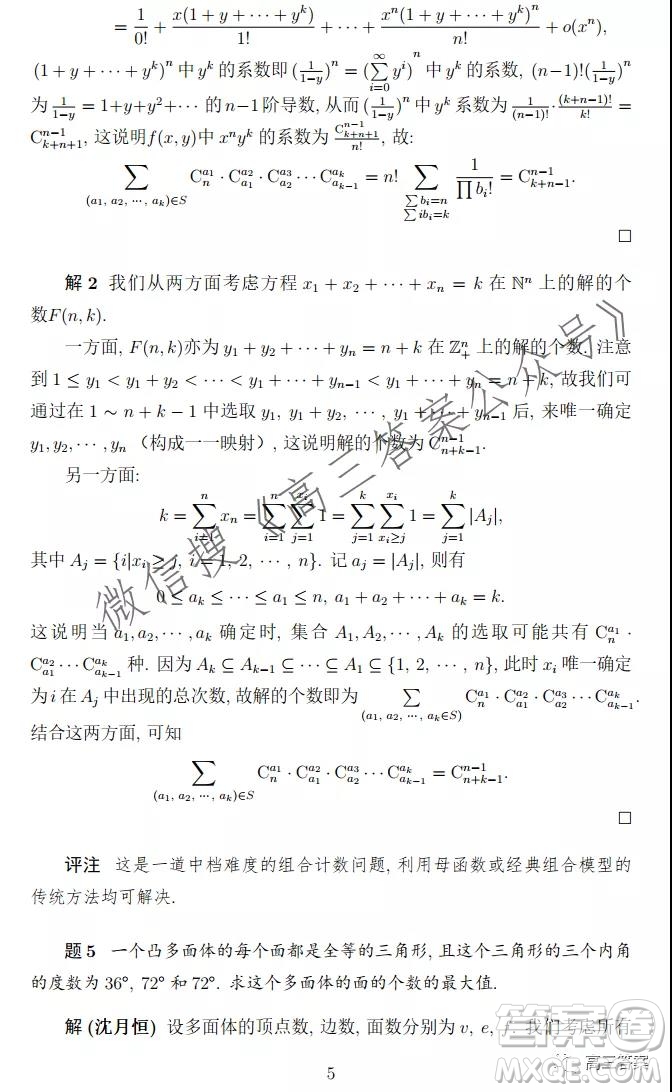 = 1/0! + x(1 + y + ··· + y^k)/1! + ··· + x^n(1 + y + ··· + y^k)^n/n! + o(x^n),
(1 + y + ··· + y^k)^n 中 y^k 的系数即 (1/(1−y))^n = (∑_{i=0}^{∞} y^i)^n 中 y^k 的系数, (n−1)!(1/(1−y))^n
为 1/(1−y) = 1+y+y^2+··· 的 n−1 阶导数, 从而 (1/(1−y))^n 中 y^k 系数为 1/(n−1)! · (k+n−1)!/k! =
C_{k+n+1}^{n−1}, 这说明 f(x, y) 中 x^n y^k 的系数为 C_{k+n+1}^{n−1}/n!, 故:
∑_{(a_1, a_2, ···, a_k)∈S} C_n^{a_1} · C_{a_1}^{a_2} · C_{a_2}^{a_3} ··· C_{a_{k−1}}^{a_k} = n! ∑_{∑b_i=n, ∑ib_i=k} 1/∏b_i! = C_{k+n−1}^{n−1}.
□
解 2 我们从两方面考虑方程 x_1 + x_2 + ··· + x_n = k 在 ℕ^n 上的解的个
数F(n, k).
一方面, F(n, k)亦为 y_1 + y_2 + ··· + y_n = n + k 在 ℤ_+^n 上的解的个数. 注意
到 1 ≤ y_1 < y_1 + y_2 < ··· < y_1 + ··· + y_{n−1} < y_1 + ··· + y_n = n + k, 故我们可
通过在 1 ∼ n + k − 1 中选取 y_1, y_1 + y_2, ···, y_1 + ··· + y_{n−1} 后, 来唯一确定
y_1, y_2, ···, y_n （构成一一映射）, 这说明解的个数为 C_{n+k−1}^{n−1}.
另一方面:
k = ∑_{i=1}^{n} x_n = ∑_{i=1}^{n} ∑_{j=1}^{x_i} 1 = ∑_{j=1}^{k} ∑_{x_i≥j}^{x_i} 1 = ∑_{j=1}^{k} |A_j|,
其中 A_j = {i|x_i ≥ j, i = 1, 2, ···, n}. 记 a_j = |A_j|, 则有
0 ≤ a_k ≤ ··· ≤ a_1 ≤ n, a_1 + a_2 + ··· + a_k = k.
这说明当 a_1, a_2, ···, a_k 确定时, 集合 A_1, A_2, ···, A_k 的选取可能共有 C_n^{a_1} ·
C_{a_1}^{a_2} ··· C_{a_{k−1}}^{a_k} 种. 因为 A_k ⊆ A_{k−1} ⊆ ··· ⊆ A_1 ⊆ {1, 2, ···, n}, 此时 x_i 唯一确定
为 i 在 A_j 中出现的总次数, 故解的个数即为 ∑_{(a_1, a_2, ···, a_k∈S)} C_n^{a_1} · C_{a_1}^{a_2} · C_{a_2}^{a_3} ··· C_{a_{k−1}}^{a_k}.
结合这两方面, 可知
∑_{(a_1, a_2, ···, a_k)∈S} C_n^{a_1} · C_{a_1}^{a_2} · C_{a_2}^{a_3} ··· C_{a_{k−1}}^{a_k} = C_{n+k−1}^{n−1}.
□
评注 这是一道中档难度的组合计数问题, 利用母函数或经典组合模型的
传统方法均可解决.
题 5 一个凸多面体的每个面都是全等的三角形, 且这个三角形的三个内角
的度数为 36°, 72° 和 72°. 求这个多面体的面的个数的最大值.
解 (沈月恒) 设多面体的顶点数, 边数, 面数分别为 v, e, f. 我们考虑所有
5
微信搜《高三答案公众号》
高三答案
答案圈
MXQE.COM